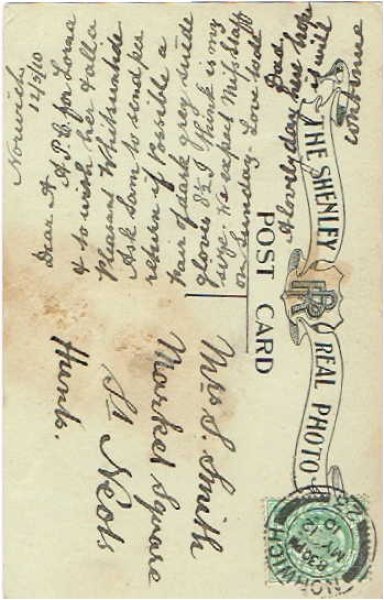 THE SHENLEY REAL PHOTO
RP
POST CARD
Norwich
12/5/10
Dear A
A P.C. for Lorna
& to wish her & all a
Pleasant Whitsuntide
Ask Sam to send per
return if Possible a
Pair of dark grey suède
gloves 8½ I think is my
size. We expect Miss Staff
on Sunday. Love to all
Dad
A lovely day here hope
is will
continue
Mrs S. Smith
Market Square
St Neots
Hunts.
NORWICH
8.30 PM
MY 12
10